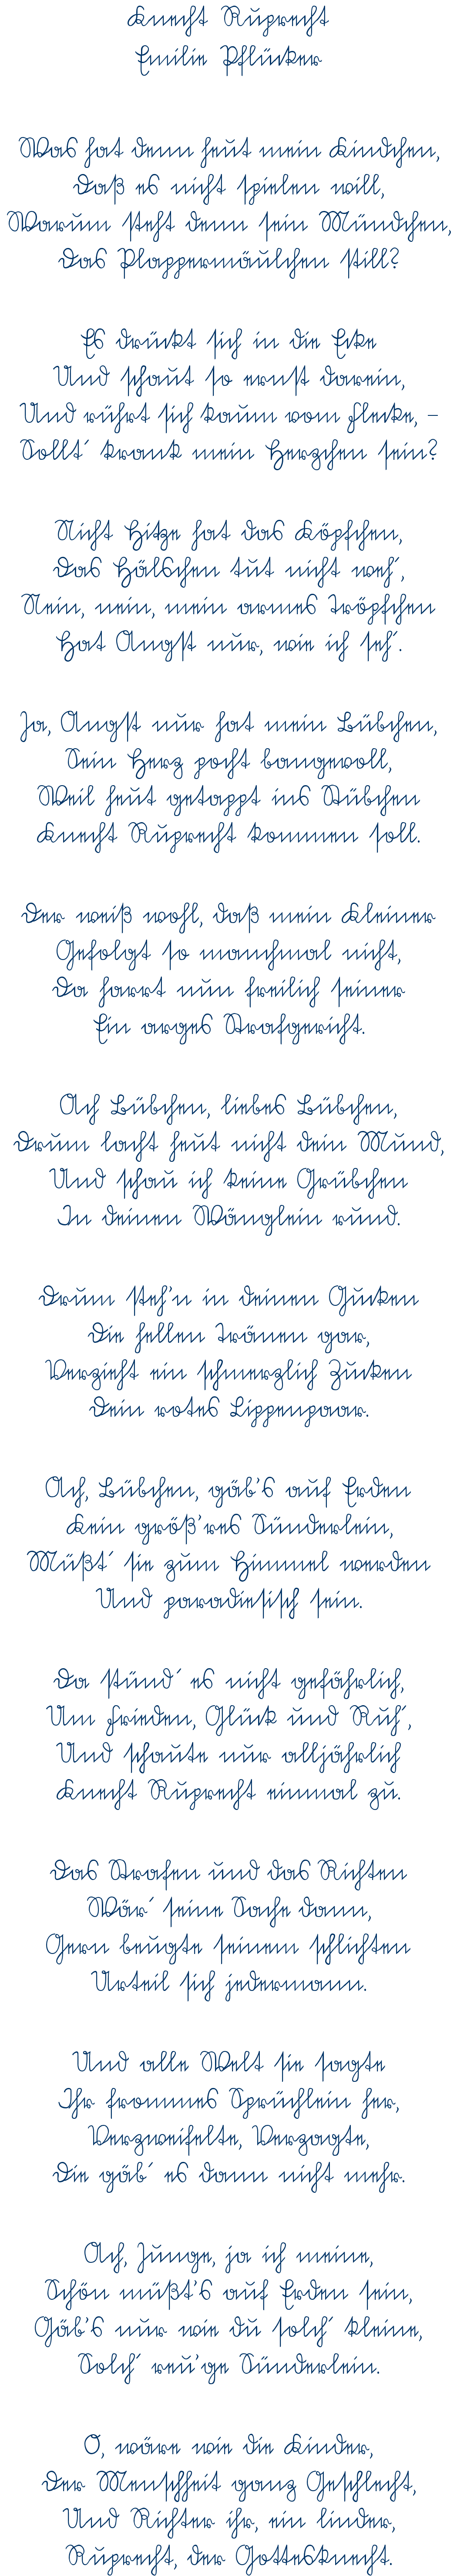 Knecht Ruprecht
Emilie Pflücker
Was hat denn heut mein Kindchen,
Daß es nicht spielen will,
Warum steht denn sein Mündchen,
Das Plappermäulchen still?
Es drückt sich in die Ecke
Und schaut so ernst darein,
Und rührt sich kaum vom Flecke, –
Sollt´ krank mein Herzchen sein?
Nicht Hitze hat das Köpfchen,
Das Hälschen tut nicht weh´,
Nein, nein, mein armes Tröpfchen
Hat Angst nur, wie ich seh´.
Ja, Angst nur hat mein Bübchen,
Sein Herz pocht bangevoll,
Weil heut getappt ins Stübchen
Knecht Ruprecht kommen soll.
Der weiß wohl, daß mein Kleiner
Gefolgt so manchmal nicht,
Da harrt nun freilich seiner
Ein arges Strafgericht.
Ach Bübchen, liebes Bübchen,
Drum lacht heut nicht dein Mund,
Und schau ich keine Grübchen
In deinen Wänglein rund.
Drum steh'n in deinen Gucken
Die hellen Tränen gar,
Verzieht ein schmerzlich Zucken
Dein rotes Lippenpaar.
Ach, Bübchen, gäb's auf Erden
Kein größ'res Sünderlein,
Müßt´ sie zum Himmel werden
Und paradiesisch sein.
Da stünd´ es nicht gefährlich,
Um Frieden, Glück und Ruh´,
Und schaute nur alljährlich
Knecht Ruprecht einmal zu.
Das Strafen und das Richten
Wär´ seine Sache dann,
Gern beugte seinem schlichten
Urteil sich jedermann.
Und alle Welt sie sagte
Ihr frommes Sprüchlein her,
Verzweifelte, Verzagte,
Die gäb´ es dann nicht mehr.
Ach, Junge, ja ich meine,
Schön müßt's auf Erden sein,
Gäb's nur wie du solch´ kleine,
Solch´ reu'ge Sünderlein.
O, wäre wie die Kinder,
Der Menschheit ganz Geschlecht,
Und Richter ihr, ein linder,
Ruprecht, der Gottesknecht.